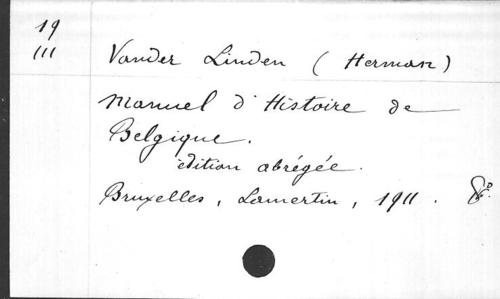 19
III
Vander Linden (Herman)
Manuel d'Histoire de
Belgique.
édition abrégée.
Bruxelles, Lamertin, 1911. 8°.